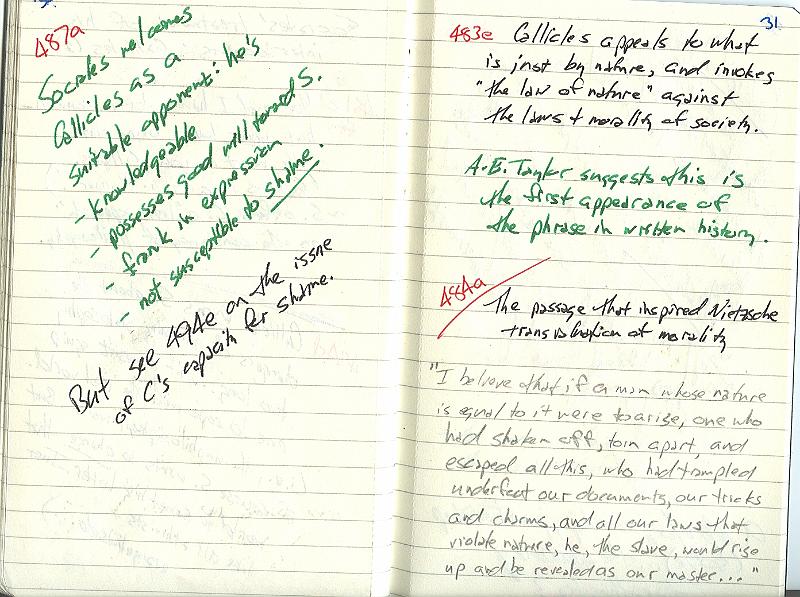 487a
Socrates welcomes
Callicles as a
suitable opponent: he's
- knowledgeable
- possesses good will towards S.
- frank in expression
- not susceptible to shame.
But see 494e on the issue
of C's capacity for shame.
31
483e Callicles appeals to what
is just by nature, and invokes
"the law of nature" against
the laws + morality of society.
A.E. Taylor suggests this is
the first appearance of
the phrase in written history.
484a
The passage that inspired Nietzsche
transvaluation of morality
"I believe that if a man whose nature
is equal to it were to arise, one who
had shaken off, torn apart, and
escaped all this, who had trampled
underfeet our documents, our tricks
and charms, and all our laws that
violate nature, he, the slave, would rise
up and be revealed as our master..."